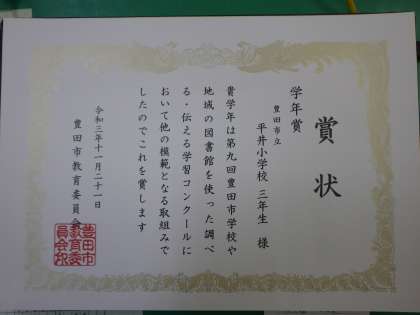 賞状
学年賞
豊田市立
平井小学校 三年生 様
貴学年は第九回豊田市学校や
地域の図書館を使った調べ
る・伝える学習コンクールに
おいて他の模範となる取組みで
したのでこれを賞します
令和三年十一月二十一日
豊田市教育委員会
豊田市
教育委
員会印